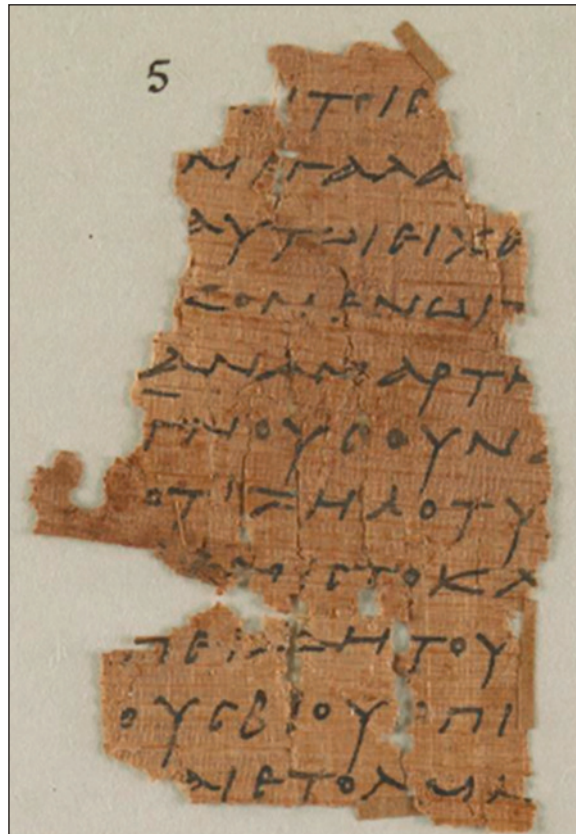 5
ΙΤΟΙϹ
ΜΕΓΑΛΑ
ΑΥΤΩΙΕΙΧΕ
ϹΟΜΕΝΩΙ
ΑΝΑΜΑΡΤΗ
ΝΟΥϹΟΥΝ
ΟΤΙΖΗΛΟΤΥ
ΜΙϹΤΟΚΛ
ΠΕΙΔΗΤΟΥ
ΟΥϹΒΙΟΥ ΠΙ
ΑΙΕΤΟΛΜΑ